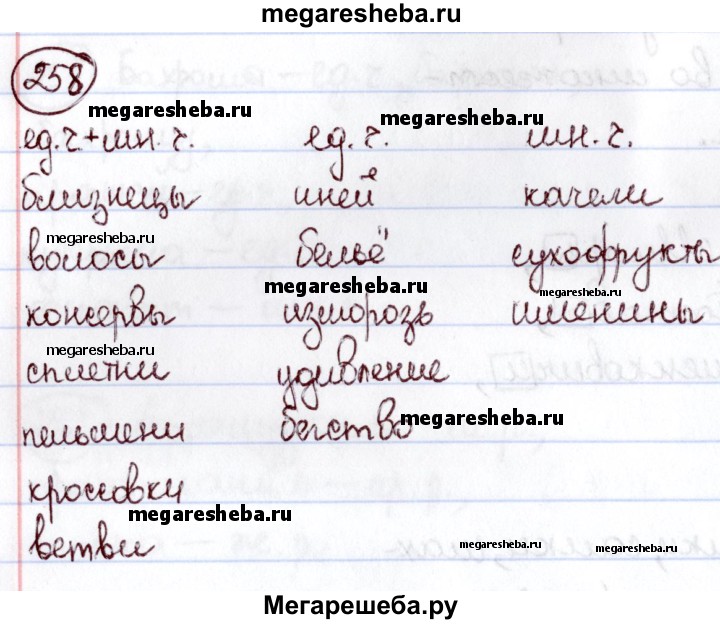 megaresheba.ru
258
megaresheba.ru
megaresheba.ru
ед.ч.+мн.ч. ед.ч. мн.ч.
близнецы иней качели
megaresheba.ru
волосы бельё сухофрукты
megaresheba.ru
megaresheba.ru
консервы изморозь именины
megaresheba.ru
сплетни удивление
megaresheba.ru
пельмени бегство
кроссовки
megaresheba.ru
ветви
megaresheba.ru
megaresheba.ru
Мегарешеба.ру